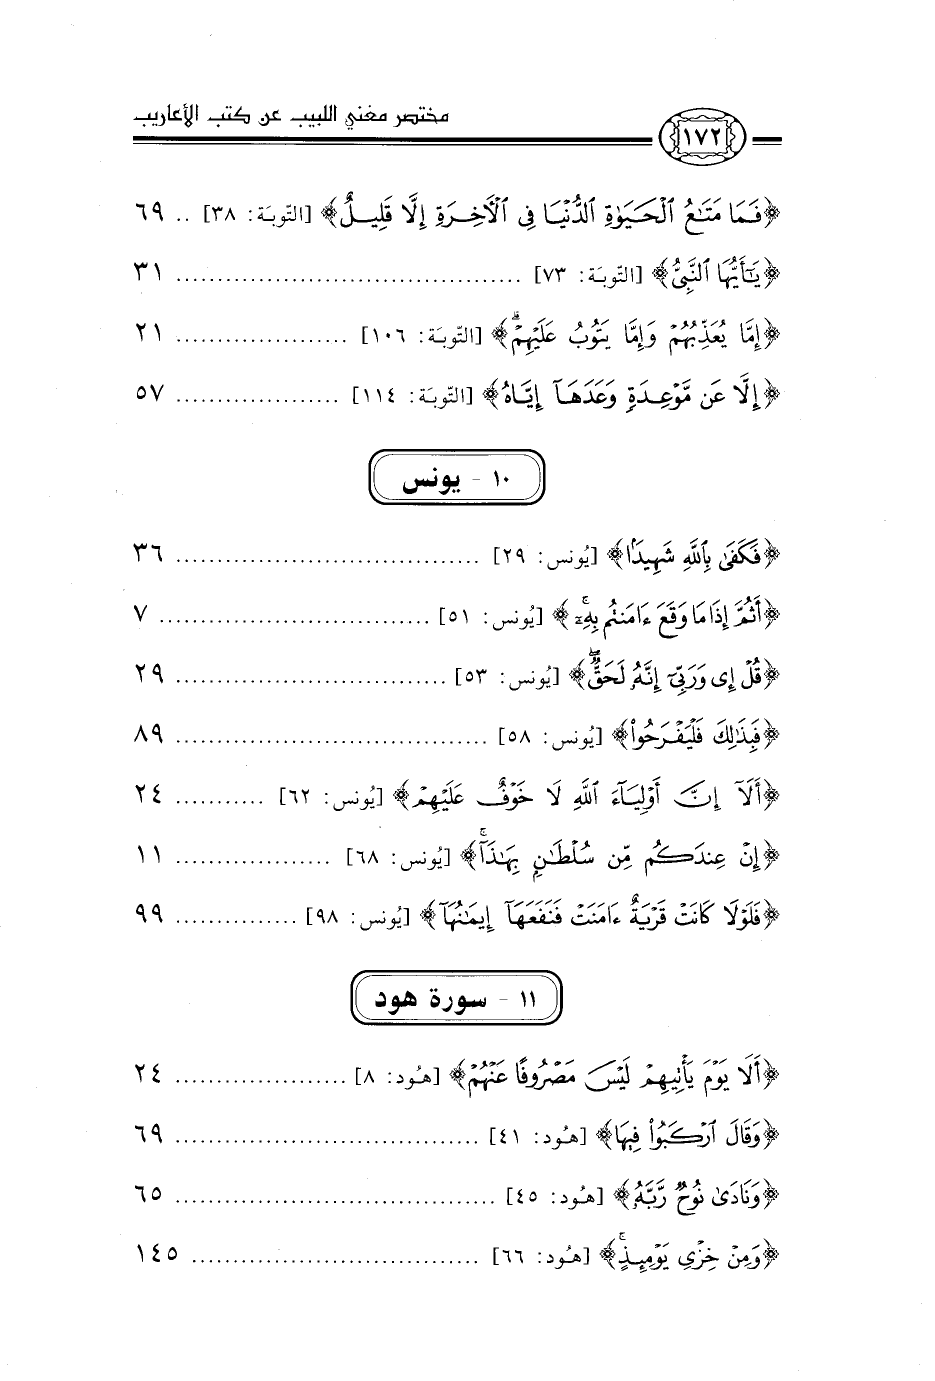 مختصر مغني اللبيب عن كتب الأعاريب
١٧٢
﴿فَمَا مَتَٰعُ ٱلْحَيَوٰةِ ٱلدُّنْيَا فِى ٱلْأَخِرَةِ إِلَّا قَلِيلٌ﴾ [التّوبَة: ٣٨] .. ٦٩
﴿يَٰٓأَيُّهَا ٱلنَّبِىُّ﴾ [التّوبَة: ٧٣] .......................................... ٣١
﴿إِمَّا يُعَذِّبُهُمْ وَإِمَّا يَتُوبُ عَلَيْهِمْۗ﴾ [التّوبَة: ١٠٦] ..................... ٢١
﴿إِلَّا عَن مَّوْعِدَةٍ وَعَدَهَآ إِيَّاهُ﴾ [التّوبَة: ١١٤] .................... ٥٧
١٠ - يونس
﴿فَكَفَىٰ بِٱللَّهِ شَهِيدًۢا﴾ [يُونس: ٢٩] ..................................... ٣٦
﴿أَثُمَّ إِذَا مَا وَقَعَ ءَامَنتُم بِهِۦٓۚ﴾ [يُونس: ٥١] ................................. ٧
﴿قُلْ إِى وَرَبِّىٓ إِنَّهُۥ لَحَقٌّۖ﴾ [يُونس: ٥٣] ................................. ٢٩
﴿فَبِذَٰلِكَ فَلْيَفْرَحُوا۟﴾ [يُونس: ٥٨] ...................................... ٨٩
﴿أَلَآ إِنَّ أَوْلِيَآءَ ٱللَّهِ لَا خَوْفٌ عَلَيْهِمْ﴾ [يُونس: ٦٢] ........... ٢٤
﴿إِنْ عِندَكُم مِّن سُلْطَٰنٍۭ بِهَٰذَآۚ﴾ [يُونس: ٦٨] ................... ١١
﴿فَلَوْلَا كَانَتْ قَرْيَةٌ ءَامَنَتْ فَنَفَعَهَآ إِيمَٰنُهَآ﴾ [يُونس: ٩٨] ............... ٩٩
١١ - سورة هود
﴿أَلَا يَوْمَ يَأْتِيهِمْ لَيْسَ مَصْرُوفًا عَنْهُمْ﴾ [هُود: ٨] ..................... ٢٤
﴿وَقَالَ ٱرْكَبُوا۟ فِيهَا﴾ [هُود: ٤١] ..................................... ٦٩
﴿وَنَادَىٰ نُوحٌ رَّبَّهُۥ﴾ [هُود: ٤٥] ....................................... ٦٥
﴿وَمِنْ خِزْىِ يَوْمِئِذٍۚ﴾ [هُود: ٦٦] ................................... ١٤٥